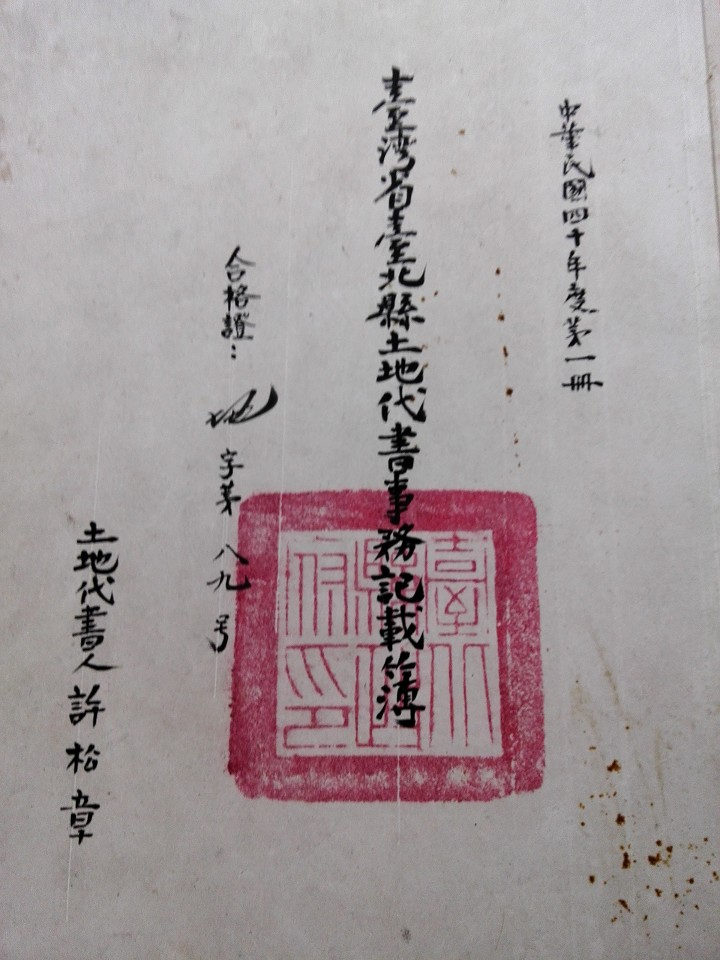 中華民國四十年度第一冊
臺灣省臺北縣土地代書事務記載簿
合格證：地字第八九号
土地代書人許松章
臺北縣政府印